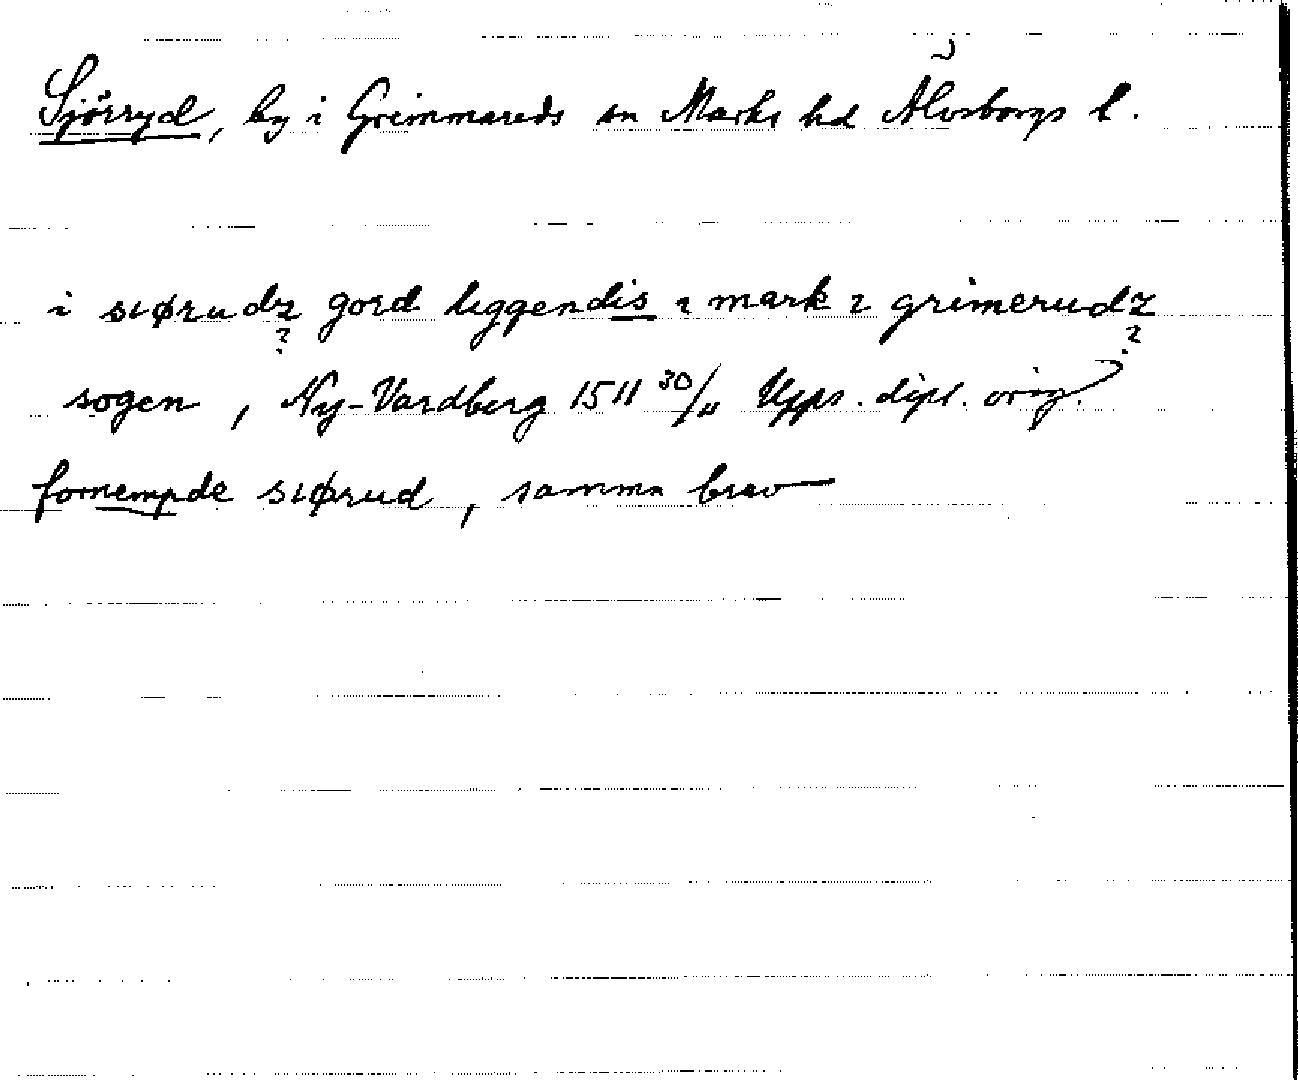 Sjörryd, by i Grimmareds sn Marks hd Älvsborgs l.
i siørudz gord liggendis i mark i grimerudz
? ?
sogen, Ny-Vardberg 1511 30/11 Upps. dipl. orig.
fornempde siørud, samma brev